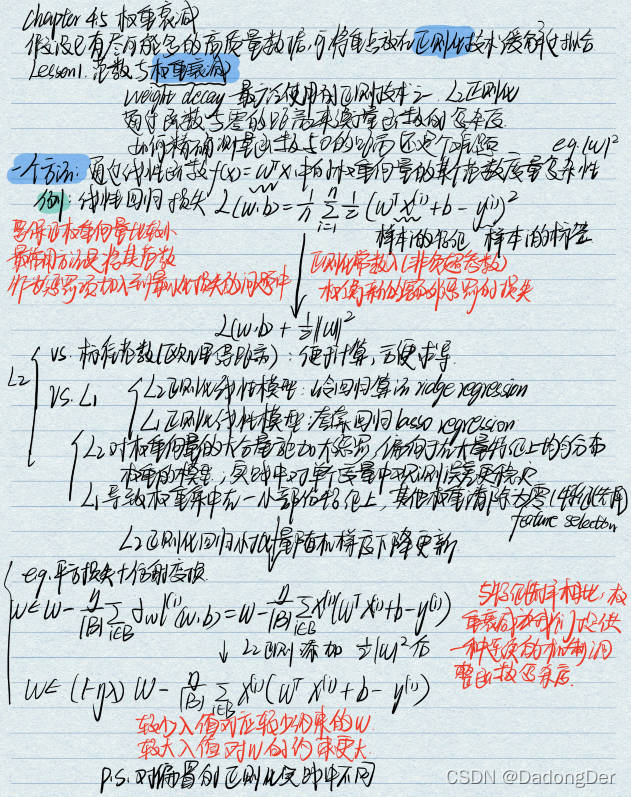 Chapter 4.5 权重衰减
假设已有尽可能多的高质量数据,可将重点放在正则化技术缓解过拟合
Lesson1. 范数与权重衰减
weight decay 最广泛使用的正则技术之一 L2正则化
通过函数与零的距离来衡量函数的复杂度
如何精确测量函数与0的距离 还是个难题
一个方法:通过线性函数f(x)=wᵀx中的权重向量的某个范数度量复杂性 e.g. ||w||²
例:线性回归损失 L(w.b)=1/n Σ_{i=1}^{n} 1/2 (wᵀx⁽ⁱ⁾+b-y⁽ⁱ⁾)²
样本i的特征 样本i的标签
要保证权重向量比较小
最常用方法是将其范数
作为惩罚项加入到最小化损失的问题中
正则化常数λ(非负超参数)
权衡新的额外惩罚的损失
L(w,b) + λ/2||w||²
L2
vs. 标准范数(欧几里得距离):便于计算,方便求导.
VS. L1
L2正则化线性模型:岭回归算法 ridge regression
L1正则化线性模型:套索回归 lasso regression
L2对权重向量的大分量施加大惩罚,偏向于在大量特征上均匀分布
权重的模型,实践中对单个变量中观测误差更稳定
L1导致权重集中在一小部份特征上,其他权重清除为零(特征选择)
feature selection
L2正则化回归小批量随机梯度下降更新
e.g. 平方损失+仿射变换
w← w- η/|B| Σ_{i∈B} ∂w l⁽ⁱ⁾(w,b) = w- η/|B| Σ_{i∈B} x⁽ⁱ⁾(wᵀx⁽ⁱ⁾+b-y⁽ⁱ⁾)
↓ L2正则 添加 λ/2||w||² 后
w← (1-ηλ) w- η/|B| Σ_{i∈B} x⁽ⁱ⁾(wᵀx⁽ⁱ⁾+b-y⁽ⁱ⁾)
与特征选择相比,权
重衰减为我们提供
一种连续的机制调
整函数复杂度.
较小λ值对应较少约束的w.
较大λ值对w的约束更大.
p.s. 对偏置的正则化实践中不同
CSDN @DadongDer